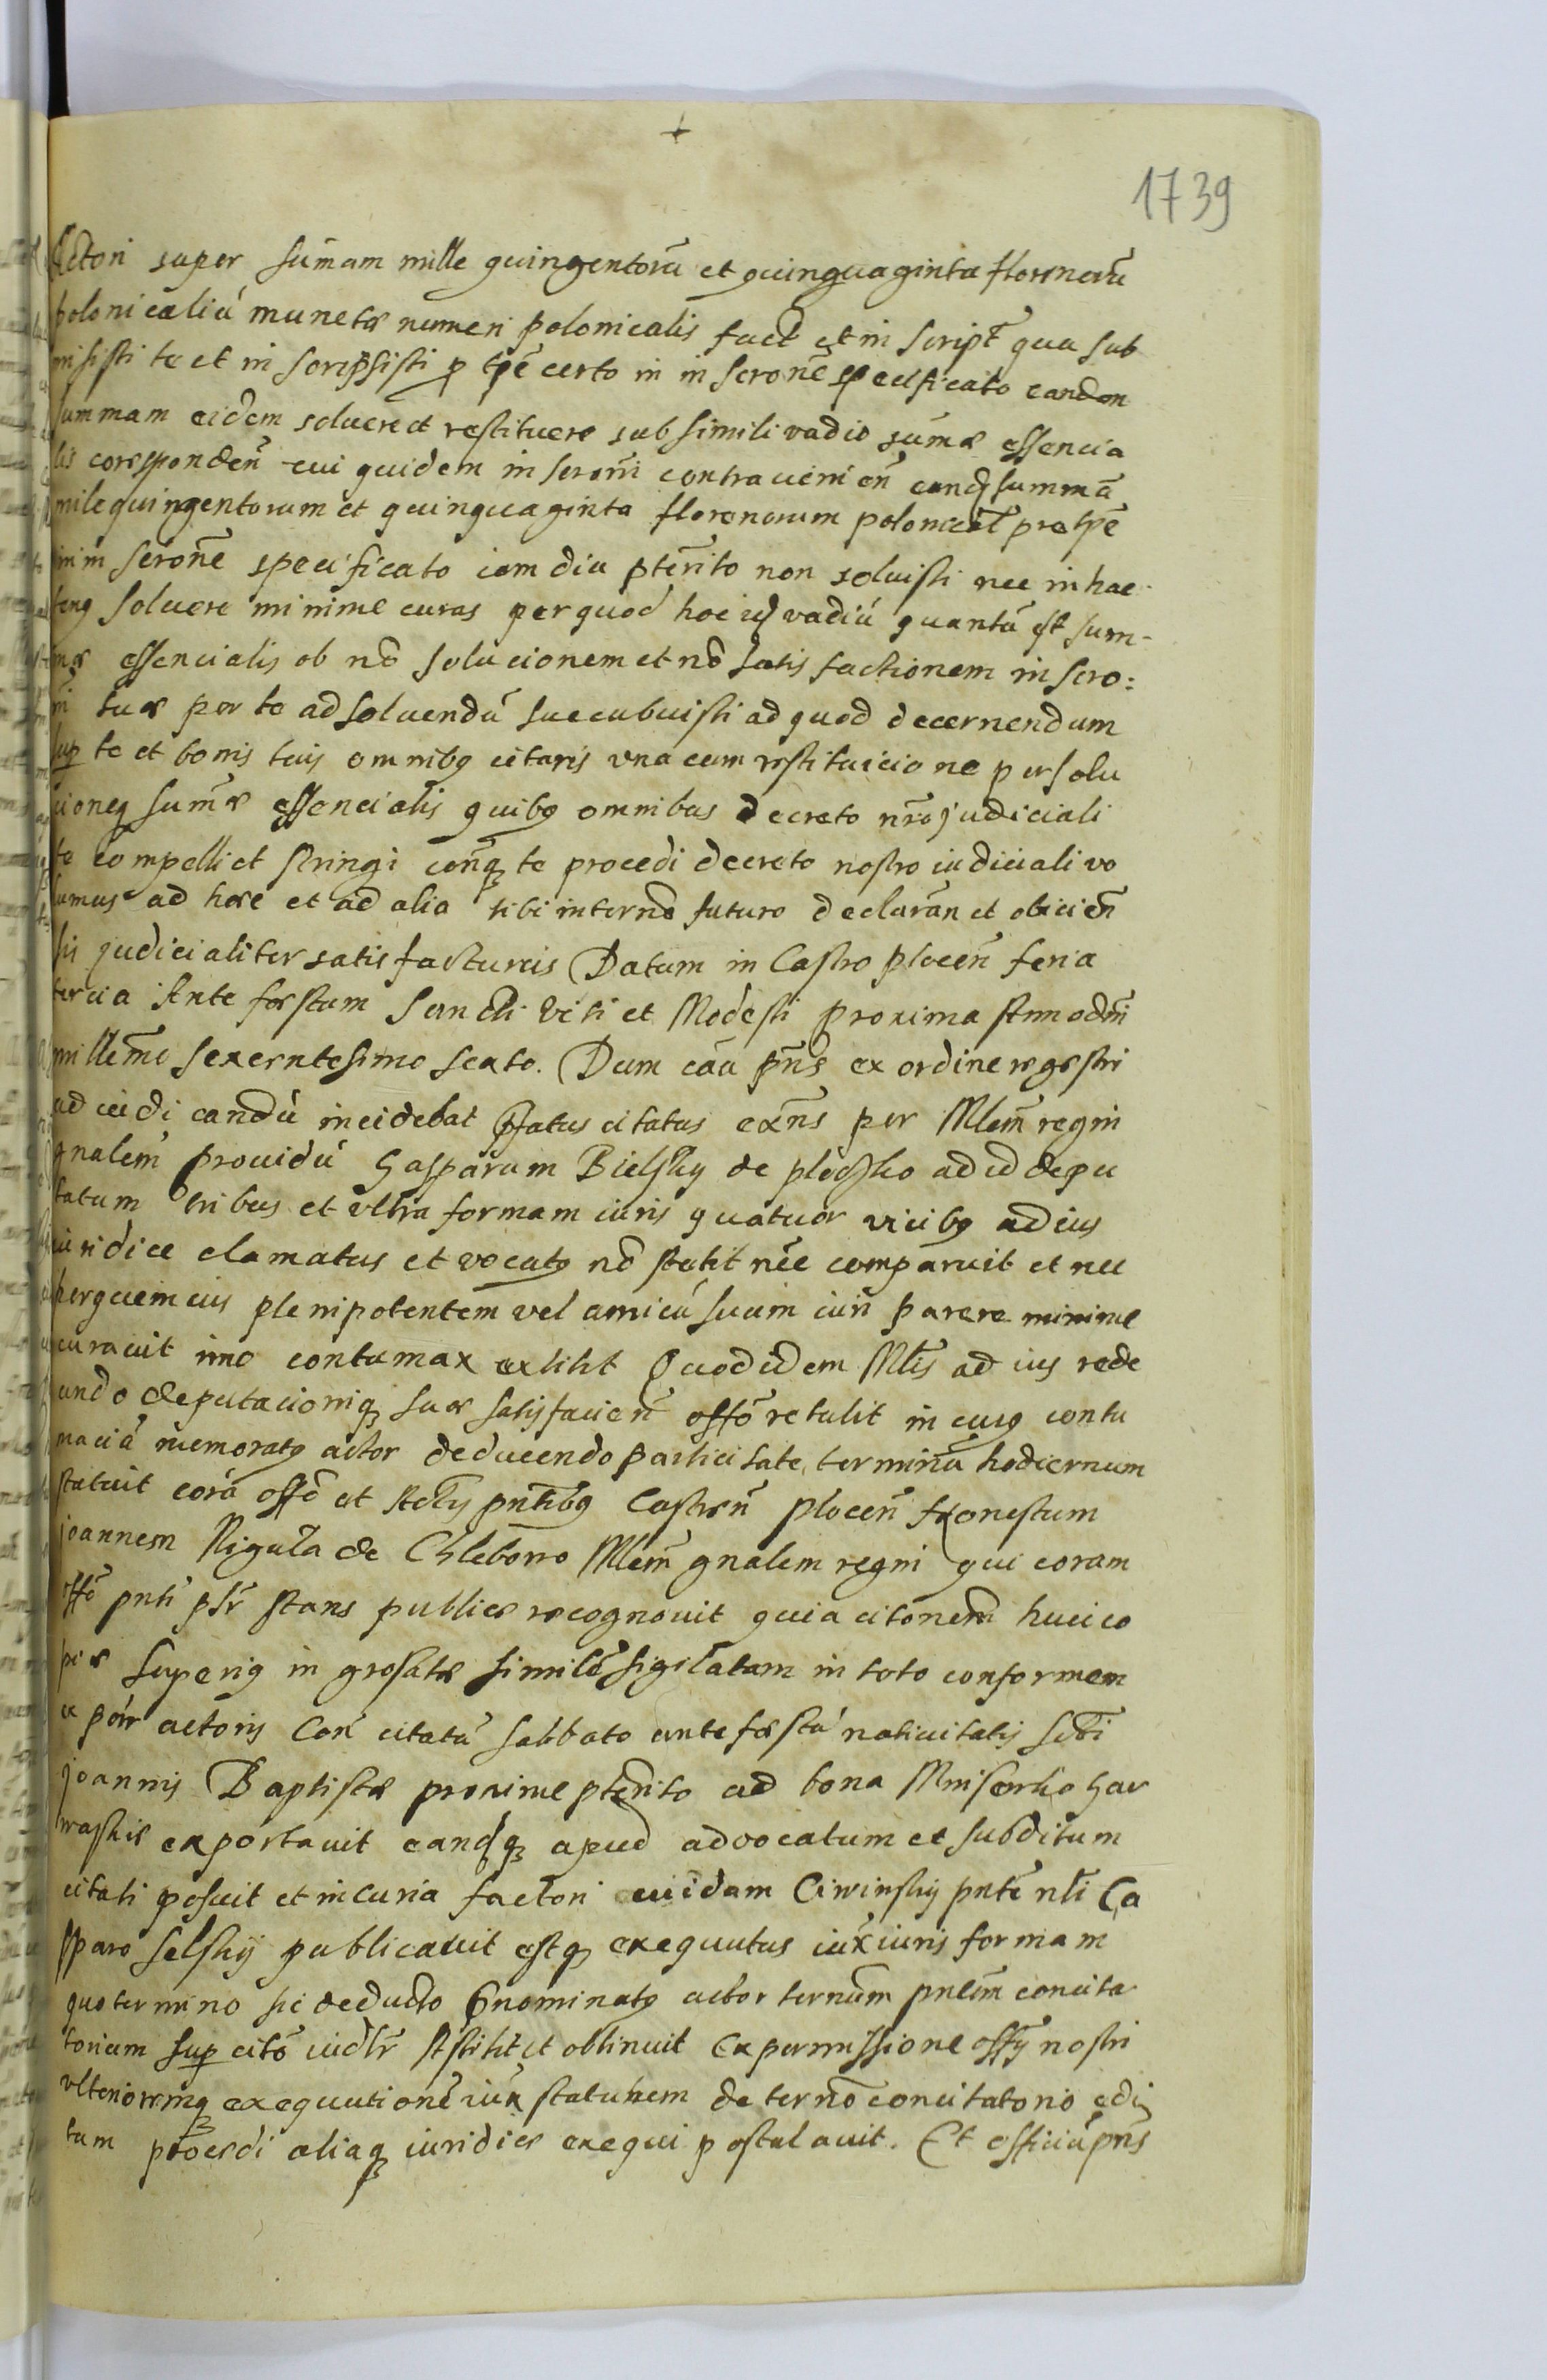 +
1739
Actori super sum̄am mille quingentorū et quinquaginta florenorū
polonicaliū munetæ numeri polonicalis fact et in script qua sub
misisti te et in scripsisti p tp̄e certo in in scronē specificato eandem
summam eidem soluere et restituere sub simili vadio sum̄æ essencia
lis corespondeñ cui quidem in scroni contraueni eñ eandq summā
mile quingentorum et quinquaginta florenorum polonical pro tp̄e
in in scronē specificato iam diu pterito non soluisti nec in hac
tenq soluere minime curas per quod hoc id vadiū quantū est sum-
mæ essencialis ob nō solucionem et nō satis factionem in scro:
ni tuæ per te ad soluendū succubuisti ad quod decernendum
sup te et bonis tuis omnibq citaris vna cum restituicione persolu
cioneq sum̄æ essencialis quibq omnibus decreto nrō judiciali
te compelli et stringi conq te procedi decreto nostro iudiciali vo
lumus ad hæc et ad alia tibi in terno futuro declarañ et obicien
sis judicialiter satis facturus Datum in Castro plocen̄ feria
tercia Ante fæstum Sancti Viti et Modesti proxima Anno dni
millemo sexcentesimo sexto. Dum cāu pn̄s ex ordine regæstri
ad iudi candū incidebat pfatus citatus exn̄s per Mlem regni
gnalem prouidū Gasparum Bielsky de plocsko ad id depu
tatum tribus et vltra formam iuris quatuor vicibq ad ius
iuridice clamatus et vocatq nō stetit nec comparuit et nec
perquemcius plenipotentem vel amicū suum iuri parere minime
curauit imo contumax extitit Quod idem Mlis ad ius rede
undo deputacioniq suæ satisfacien̄ offō retulit in cuiq contu
maciā memoratq actor deducendo parti citatæ, terminū hodiernum
statuit corā offō et actis pntibq Castren̄ plocen̄ Honestum
joannem Rigula de Chlebowo Mlem gnalem regni qui coram
offō pnti pslr stans publice recognouit quia citōnem huic co
piæ superiq in grosatæ similē sigilatam in toto conformem
ex par actoris Con̄ citatū sabbato ante fæstū natiuitatis scti
Joannis Baptistæ proxime pterito ad bona Mnisewko Gar
waskie exportauit eandq apud aduocatum et subditum
citati posuit et in curia factori cuidam Ciwinskij pntē nli Ca
sparo Selskij publicauit estq exequutus iux iuris formam
quo termino sic deducto Pnominatq actor ternum pntem concita
torium sup citō iudlr Astitit et obtinuit Ex permissione offij nostri
vlterioremq exequutionē iux statutem de ternō concitatorio edi
tum procedi aliaq iuridice exequi postulauit. Et officiū pns